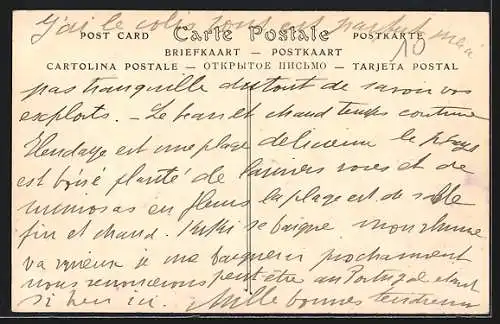 J'ai le colis tout est parfait mais
Carte Postale
POST CARD POSTKARTE
10
BRIEFKAART — POSTKAART
CARTOLINA POSTALE — ОТКРЫТОЕ ПИСЬМО — TARJETA POSTAL
pas tranquille du tout de savoir vos
exploits. — Le beau et chaud temps continue
Hendaye est une plage délicieuse le pays
est boisé planté de lauriers roses et de
mimosas en fleurs la plage est de sable
fin et chaud. Kiki se baigne mon rhume
va mieux je me baignerai prochainement
nous renoncerons peut être au Portugal étant
si bien ici. Mille bonnes tendresses